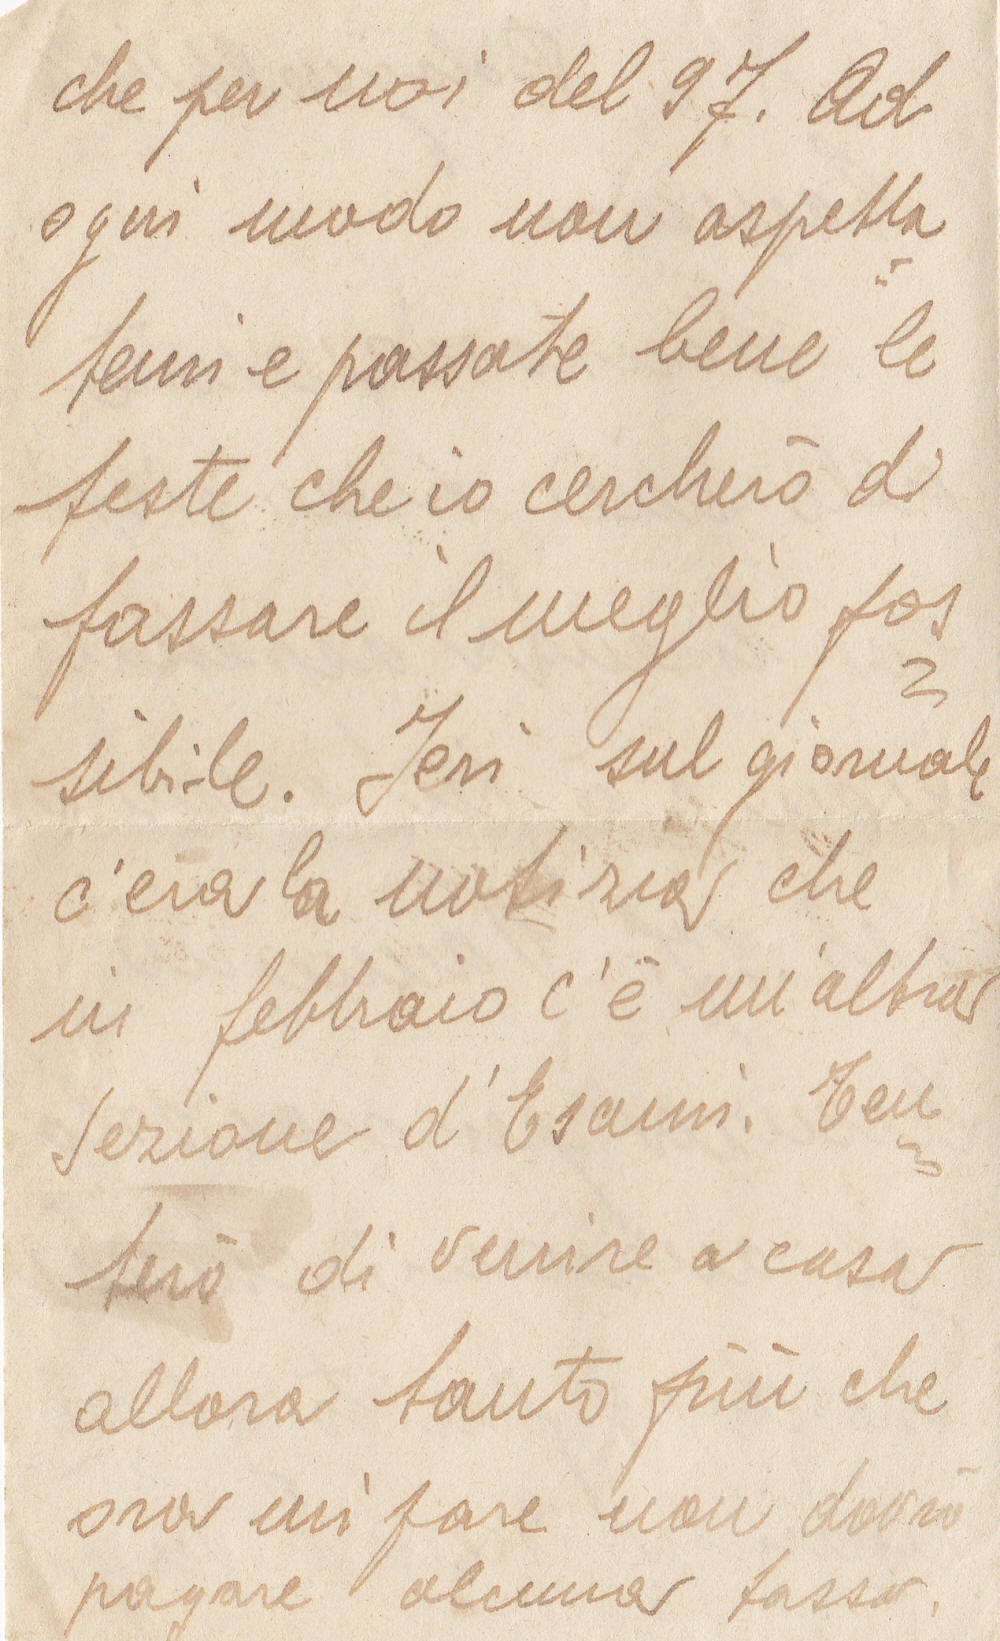 che per noi del 97. Ad
ogni modo non aspetta
temi e passate bene le
feste che io cercherò di
passare il meglio pos
sibile. Ieri sul giornale
c'era la notizia che
in febbraio c'è un'altra
Sezione d'Esami. Ten
terò di venire a casa
allora tanto più che
ora mi pare non dovrò
pagare alcuna tassa.